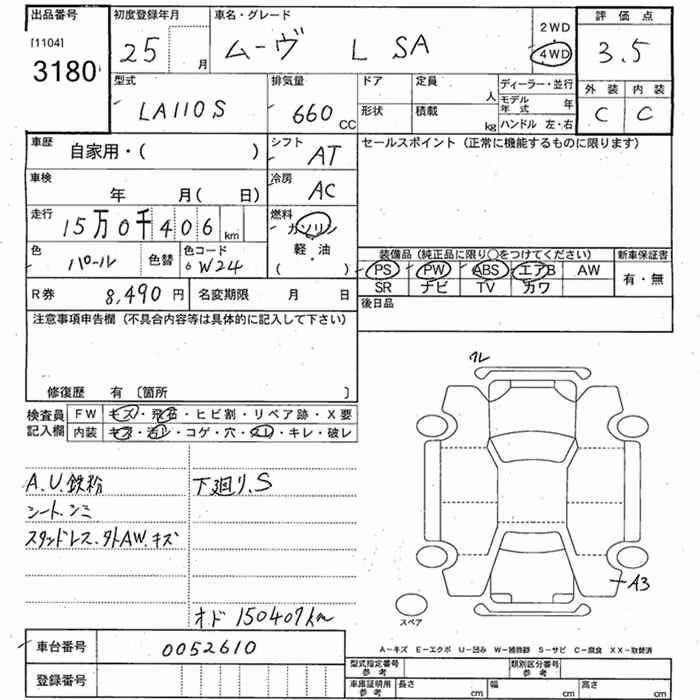 出品番号 初度登録年月 車名・グレード 評価点
[1104] 3180 25 月 ムーヴ L SA 2WD 4WD 3.5
型式 排気量 ドア 定員 人 ディーラー・並行 外装 内装
LA110S 660 CC 形状 積載 kg モデル年式 年 ハンドル 左・右 C C
車歴 自家用・( ) シフト AT セールスポイント (正常に機能するものに限ります)
車検 年 月( 日) 冷房 AC
走行 15万0千406 km 燃料 ガソリン 軽・油 ( )
色 パール 色替 色コード W24
装備品 (純正品に限り○をつけてください) 新車保証書
PS PW ABS エアB AW 有・無
SR ナビ TV カワ
R券 8,490円 名変期限 月 日 後日品
注意事項申告欄 (不具合内容等は具体的に記入して下さい)
修復歴 有 〔箇所 〕
検査員記入欄 FW キズ・飛石・ヒビ割・リペア跡・X要
内装 キズ・汚レ・コゲ・穴・スレ・キレ・破レ
A.U.鉄粉 下廻り.S
シート.シミ
スタッドレス.夕AW.キズ
オド 150407km
ワレ
A3
スペア
車台番号 0052610
A-キズ E-エクボ U-凹み W-補修跡 S-サビ C-腐食 XX-取替済
登録番号
型式指定番号 参考 類別区分番号 参考
車庫証明用 参考 長さ cm 幅 cm 高さ cm